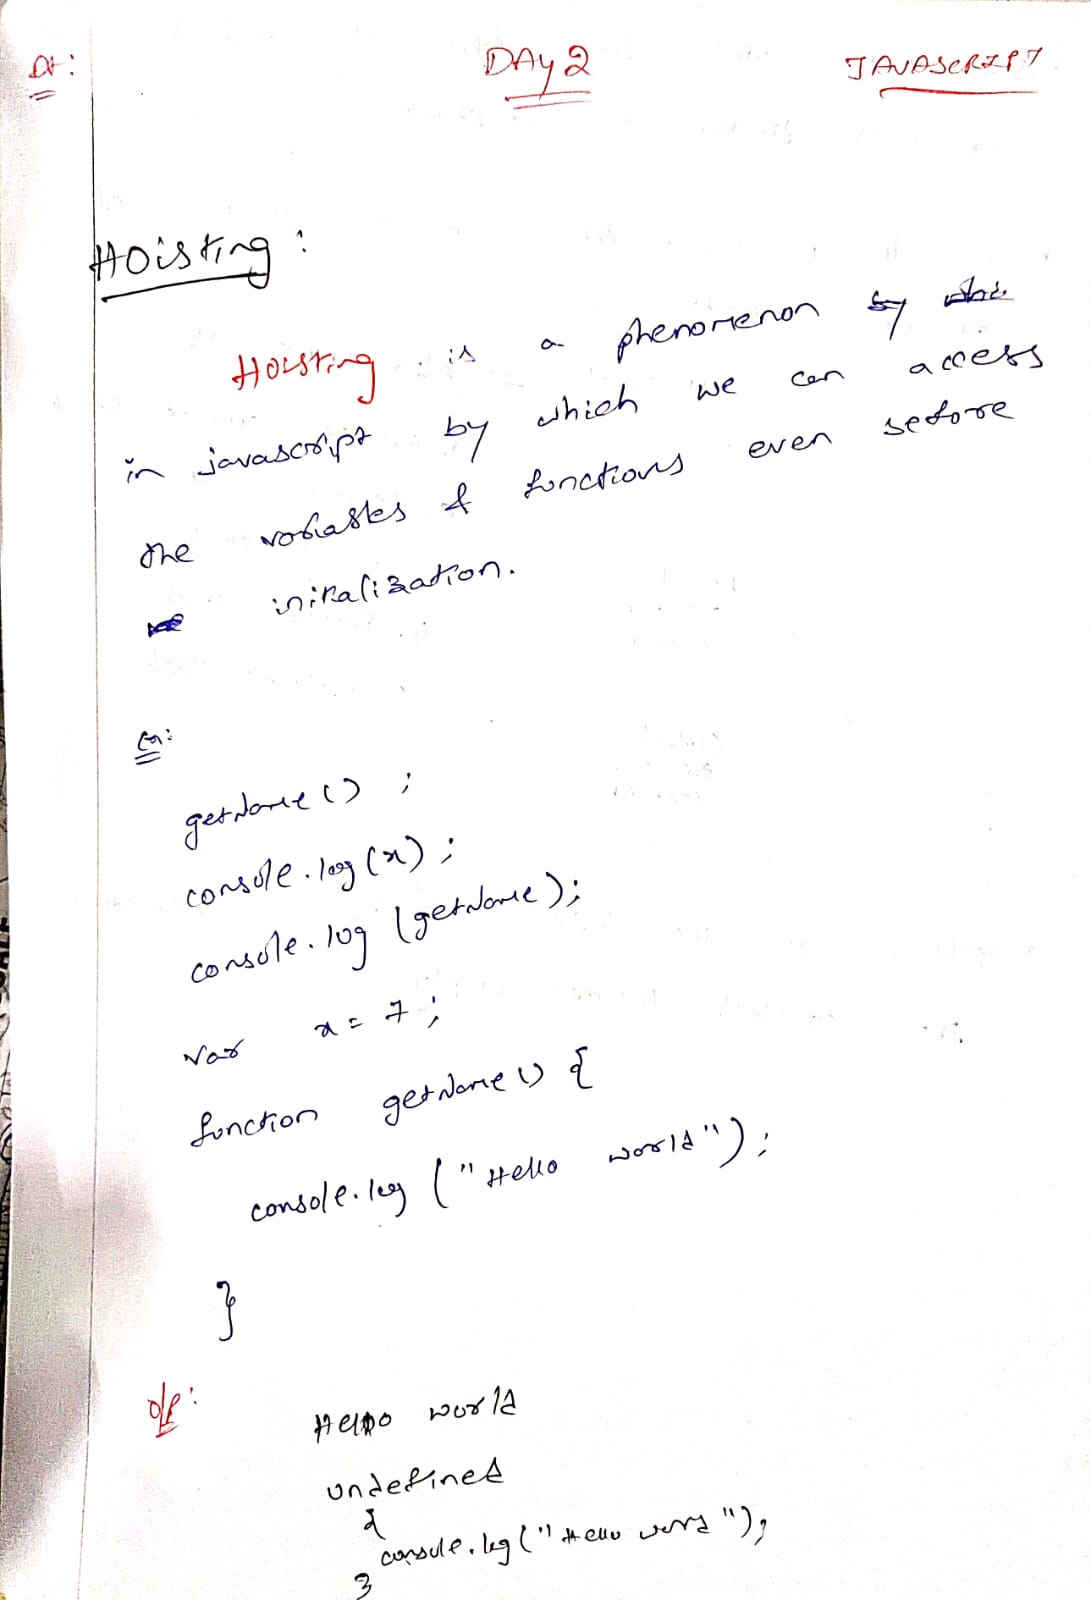 Dt:
DAY 2
JAVASCRIPT
Hoisting :
Hoisting is a phenomenon by
in javascript by which we can access
the variables & functions even before
initalization.
getName () ;
console.log (x) ;
console.log (getName);
var x = 7 ;
function getName () {
console.log ("Hello world");
}
o/p:
Hello world
undefined
{
console.log ("Hello world");
}